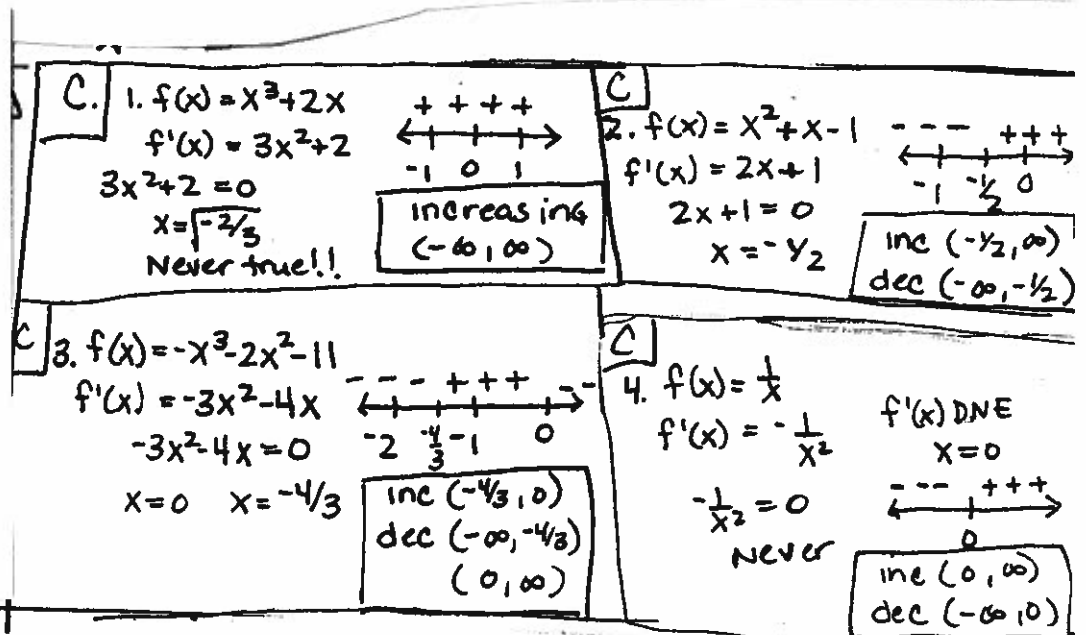 C. 1. f(x) = x³+2x
f'(x) = 3x²+2
3x²+2 = 0
x = √-2/3
Never true!!
+ + + +
-1 0 1
increasing
(-∞, ∞)
C
2. f(x) = x²+x-1
f'(x) = 2x+1
2x+1 = 0
x = -1/2
- - - + + +
-1 -1/2 0
inc (-1/2, ∞)
dec (-∞, -1/2)
C 3. f(x) = -x³-2x²-11
f'(x) = -3x²-4x
-3x²-4x = 0
x=0 x = -4/3
- - - + + + - -
-2 -4/3 -1 0
inc (-4/3, 0)
dec (-∞, -4/3)
(0, ∞)
C
4. f(x) = 1/x
f'(x) = - 1/x²
-1/x² = 0
Never
f'(x) DNE
x=0
- - - + + +
0
inc (0, ∞)
dec (-∞, 0)